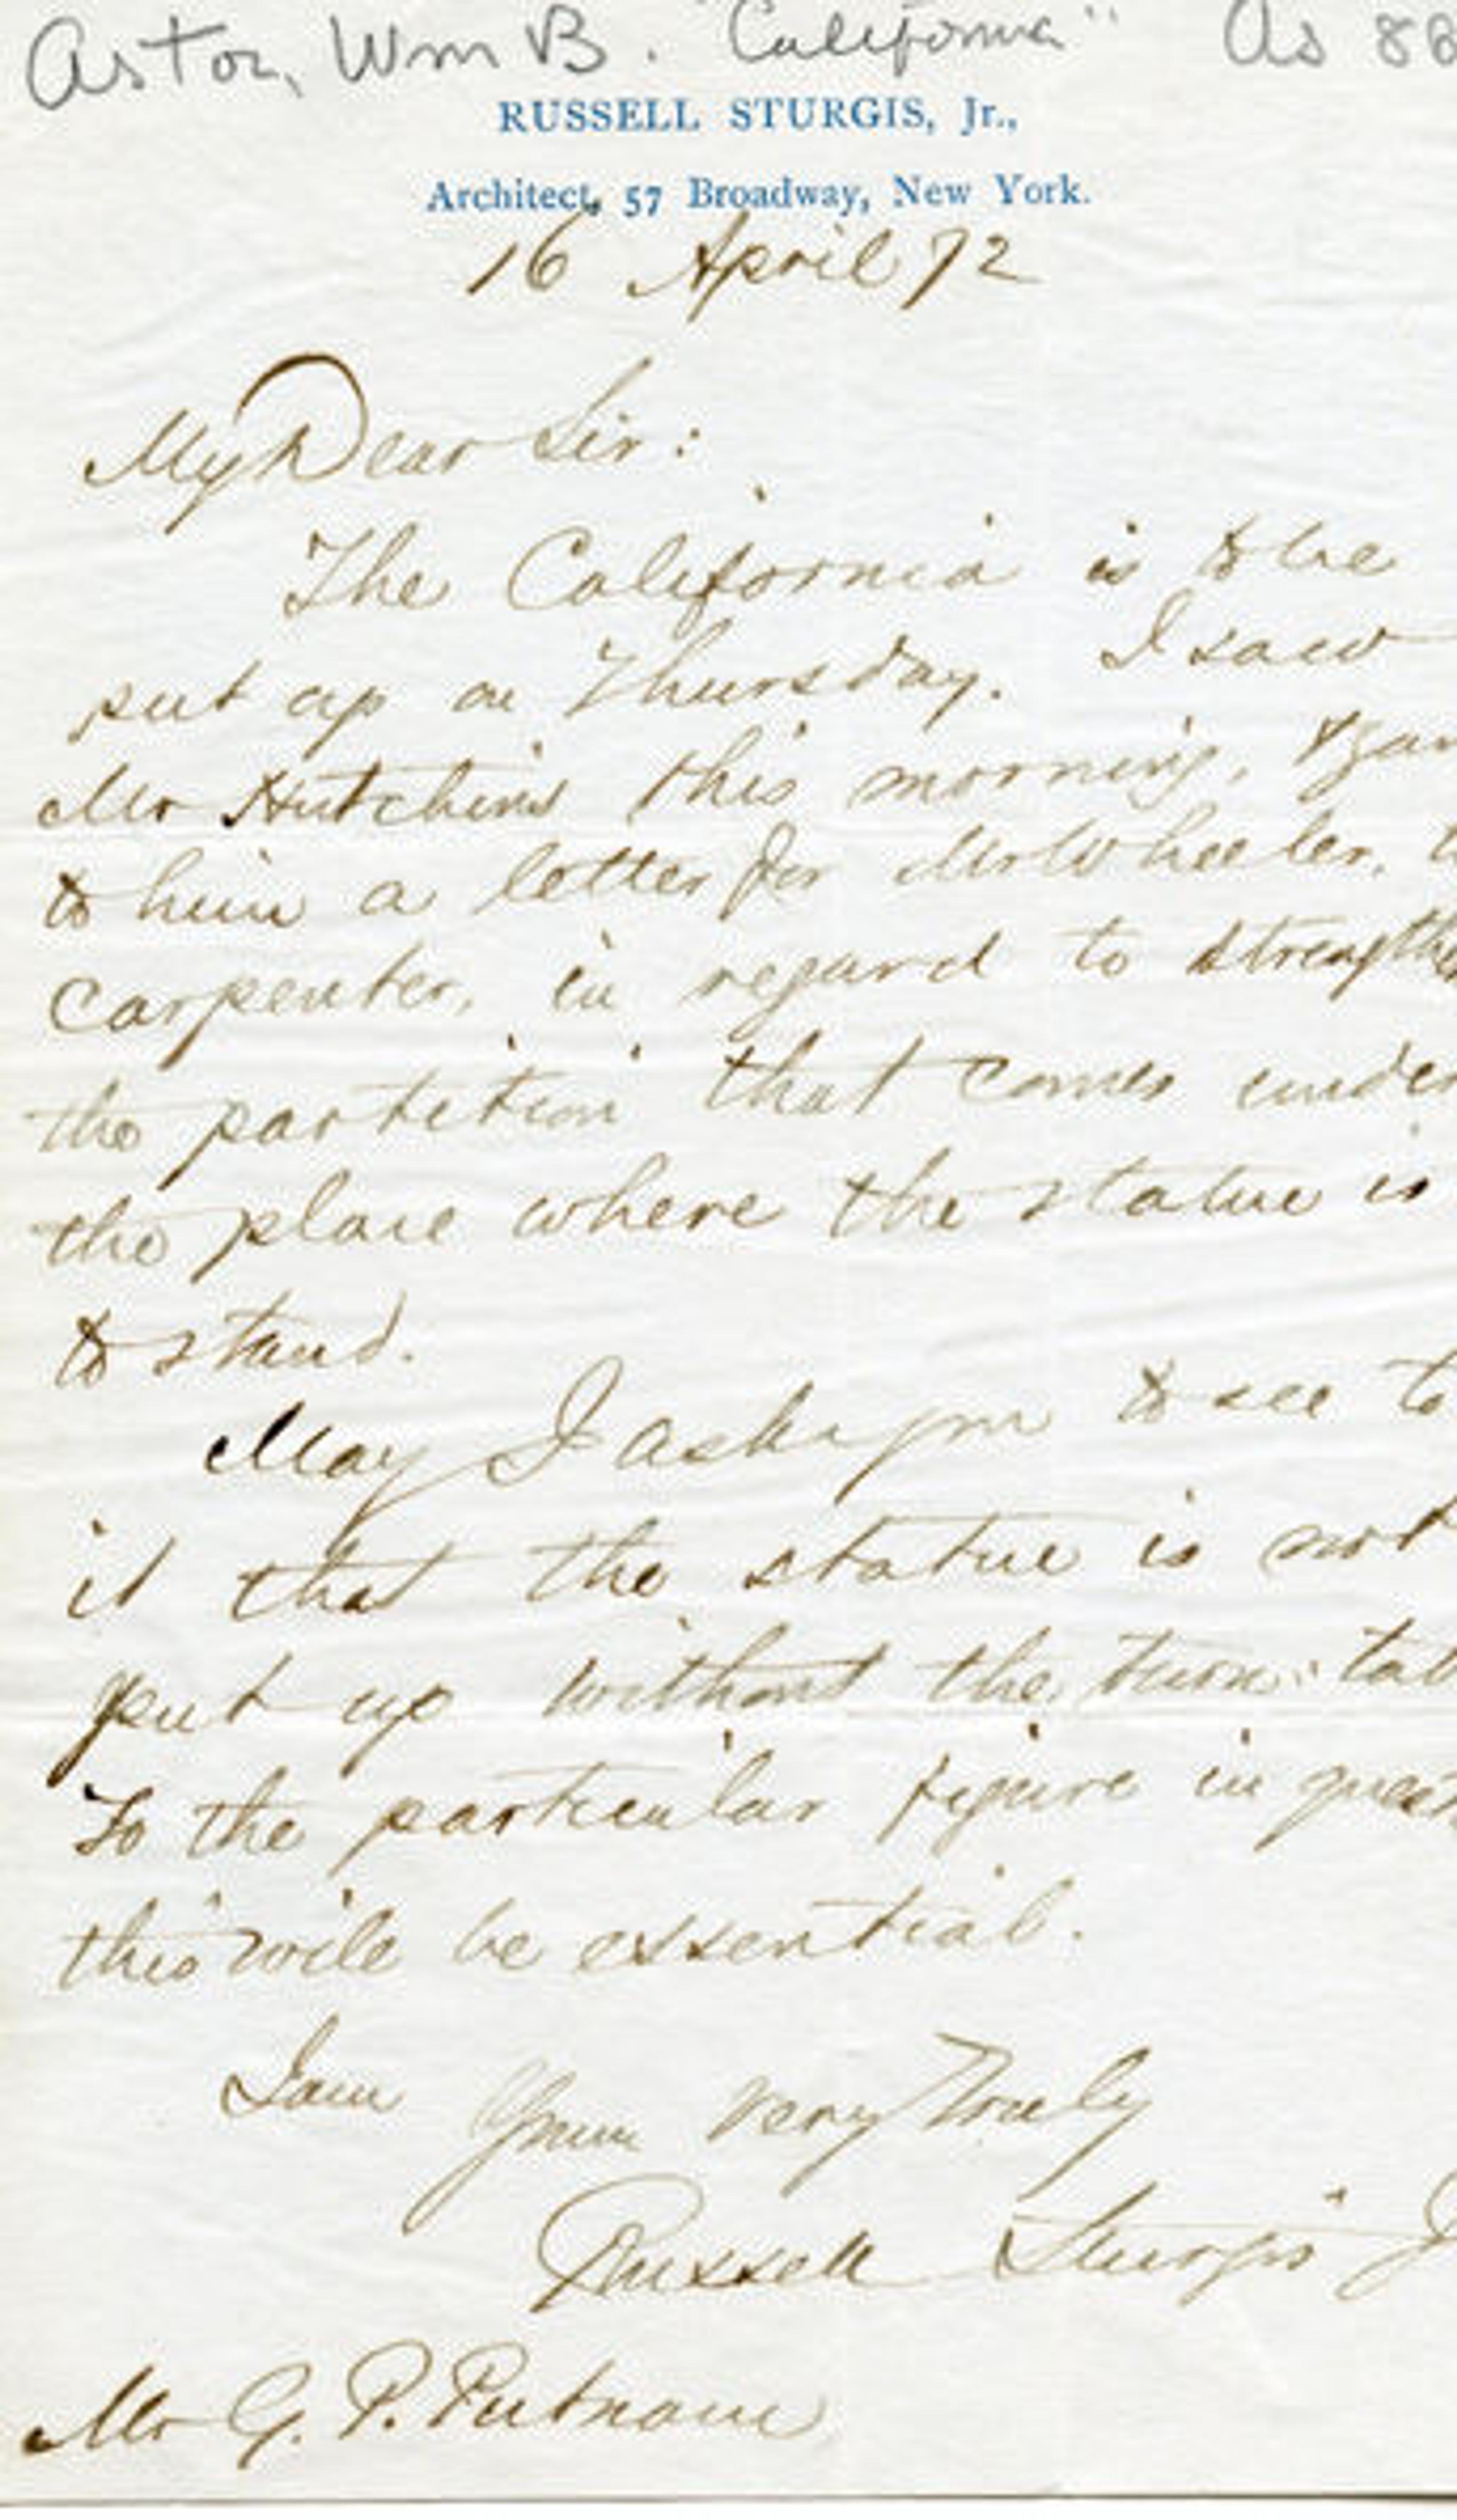 Astor, Wm B. "California" As 8B
RUSSELL STURGIS, Jr.,
Architect, 57 Broadway, New York.
16 April 72
My Dear Sir:
The California is to be
put up on Thursday. I saw
Mr Hutchins this morning, & gav
to him a letter for Mr Wheeler, t
carpenter, in regard to strengthe
the partition that comes under
the place where the statue is
to stand.
May I ask you to see to
it that the statue is not
put up without the turn-tab
To the particular figure in quest
this will be essential.
I am Yours very Truly
Russell Sturgis J
Mr G. P. Putnam